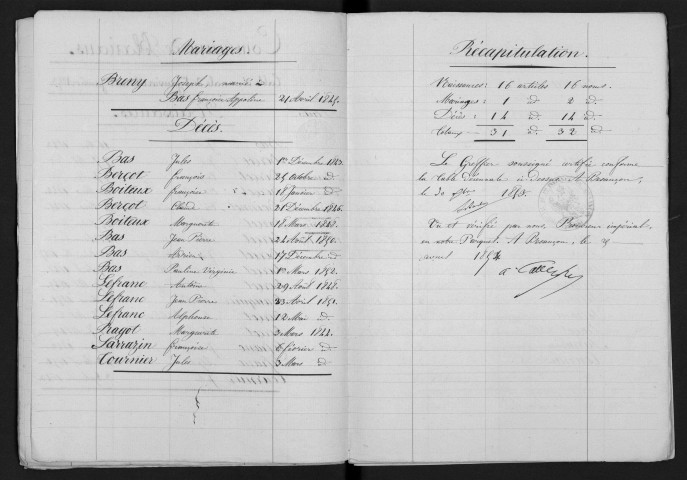 Mariages.
Breny Joseph, marié à
Bas françoise Appoline 21 Avril 1845.
Décès.
Bas Jules 1er Décembre 1843.
Berçot françois 25 Octobre d°
Boiteux françoise 11 Janvier d°
Berçot Claude 21 Décembre 1846.
Boiteux Marguerite 18 Mars 1848.
Bas Jean Pierre 24 Août 1850.
Bas 17 Décembre d°
Bas Pauline Virginie 1er Mars 1852.
Lefranc Antoine 29 Août 1848.
Lefranc Jean Pierre 23 Avril 1851.
Lefranc Alphonse 12 Mai d°
Prayot Marguerite 3 Mars 1844.
Sarrazin françois 6 février d°
Tournier Jules 3 Mars d°
Récapitulation.
Naissances: 16 articles 16 noms.
Mariages: 1 d° 2 d°
Décès: 14 d° 14 d°
Totaux: 31 d° 32 d°
Le Greffier soussigné certifie conforme
la table décennale ci-dessus. A Besançon,
le 30 1853.
Vu et vérifié par nous, Procureur impérial,
en notre Parquet. A Besançon, le 9
avril 1854